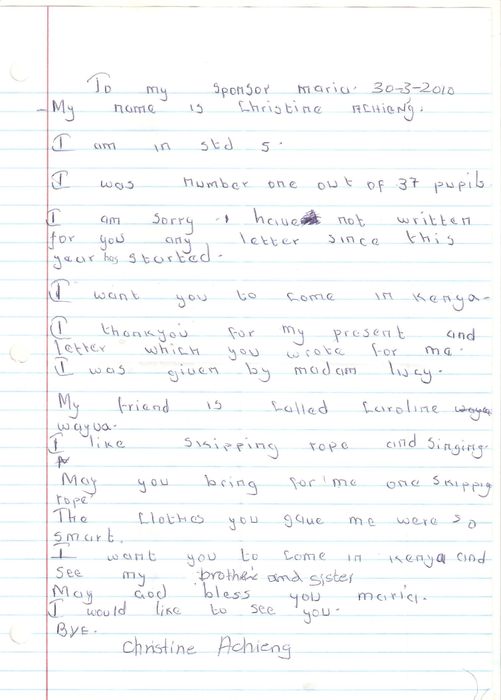 To my sponsor maria. 30-3-2010
- My name is Christine ACHIENG.
I am in std 5.
I was number one out of 37 pupils
I am sorry I have not written
for you any letter since this
year has started.
I want you to come in Kenya-
I thankyou for my present and
letter which you wrote for me.
I was given by madam lucy.
My friend is called Caroline
wayua.
I like skipping rope and singing.
May you bring for me one skippig
rope
The clothes you gave me were so
smart.
I want you to come in Kenya and
see my brother and sister
May God bless you maria.
I would like to see you.
BYE.
Christine Achieng